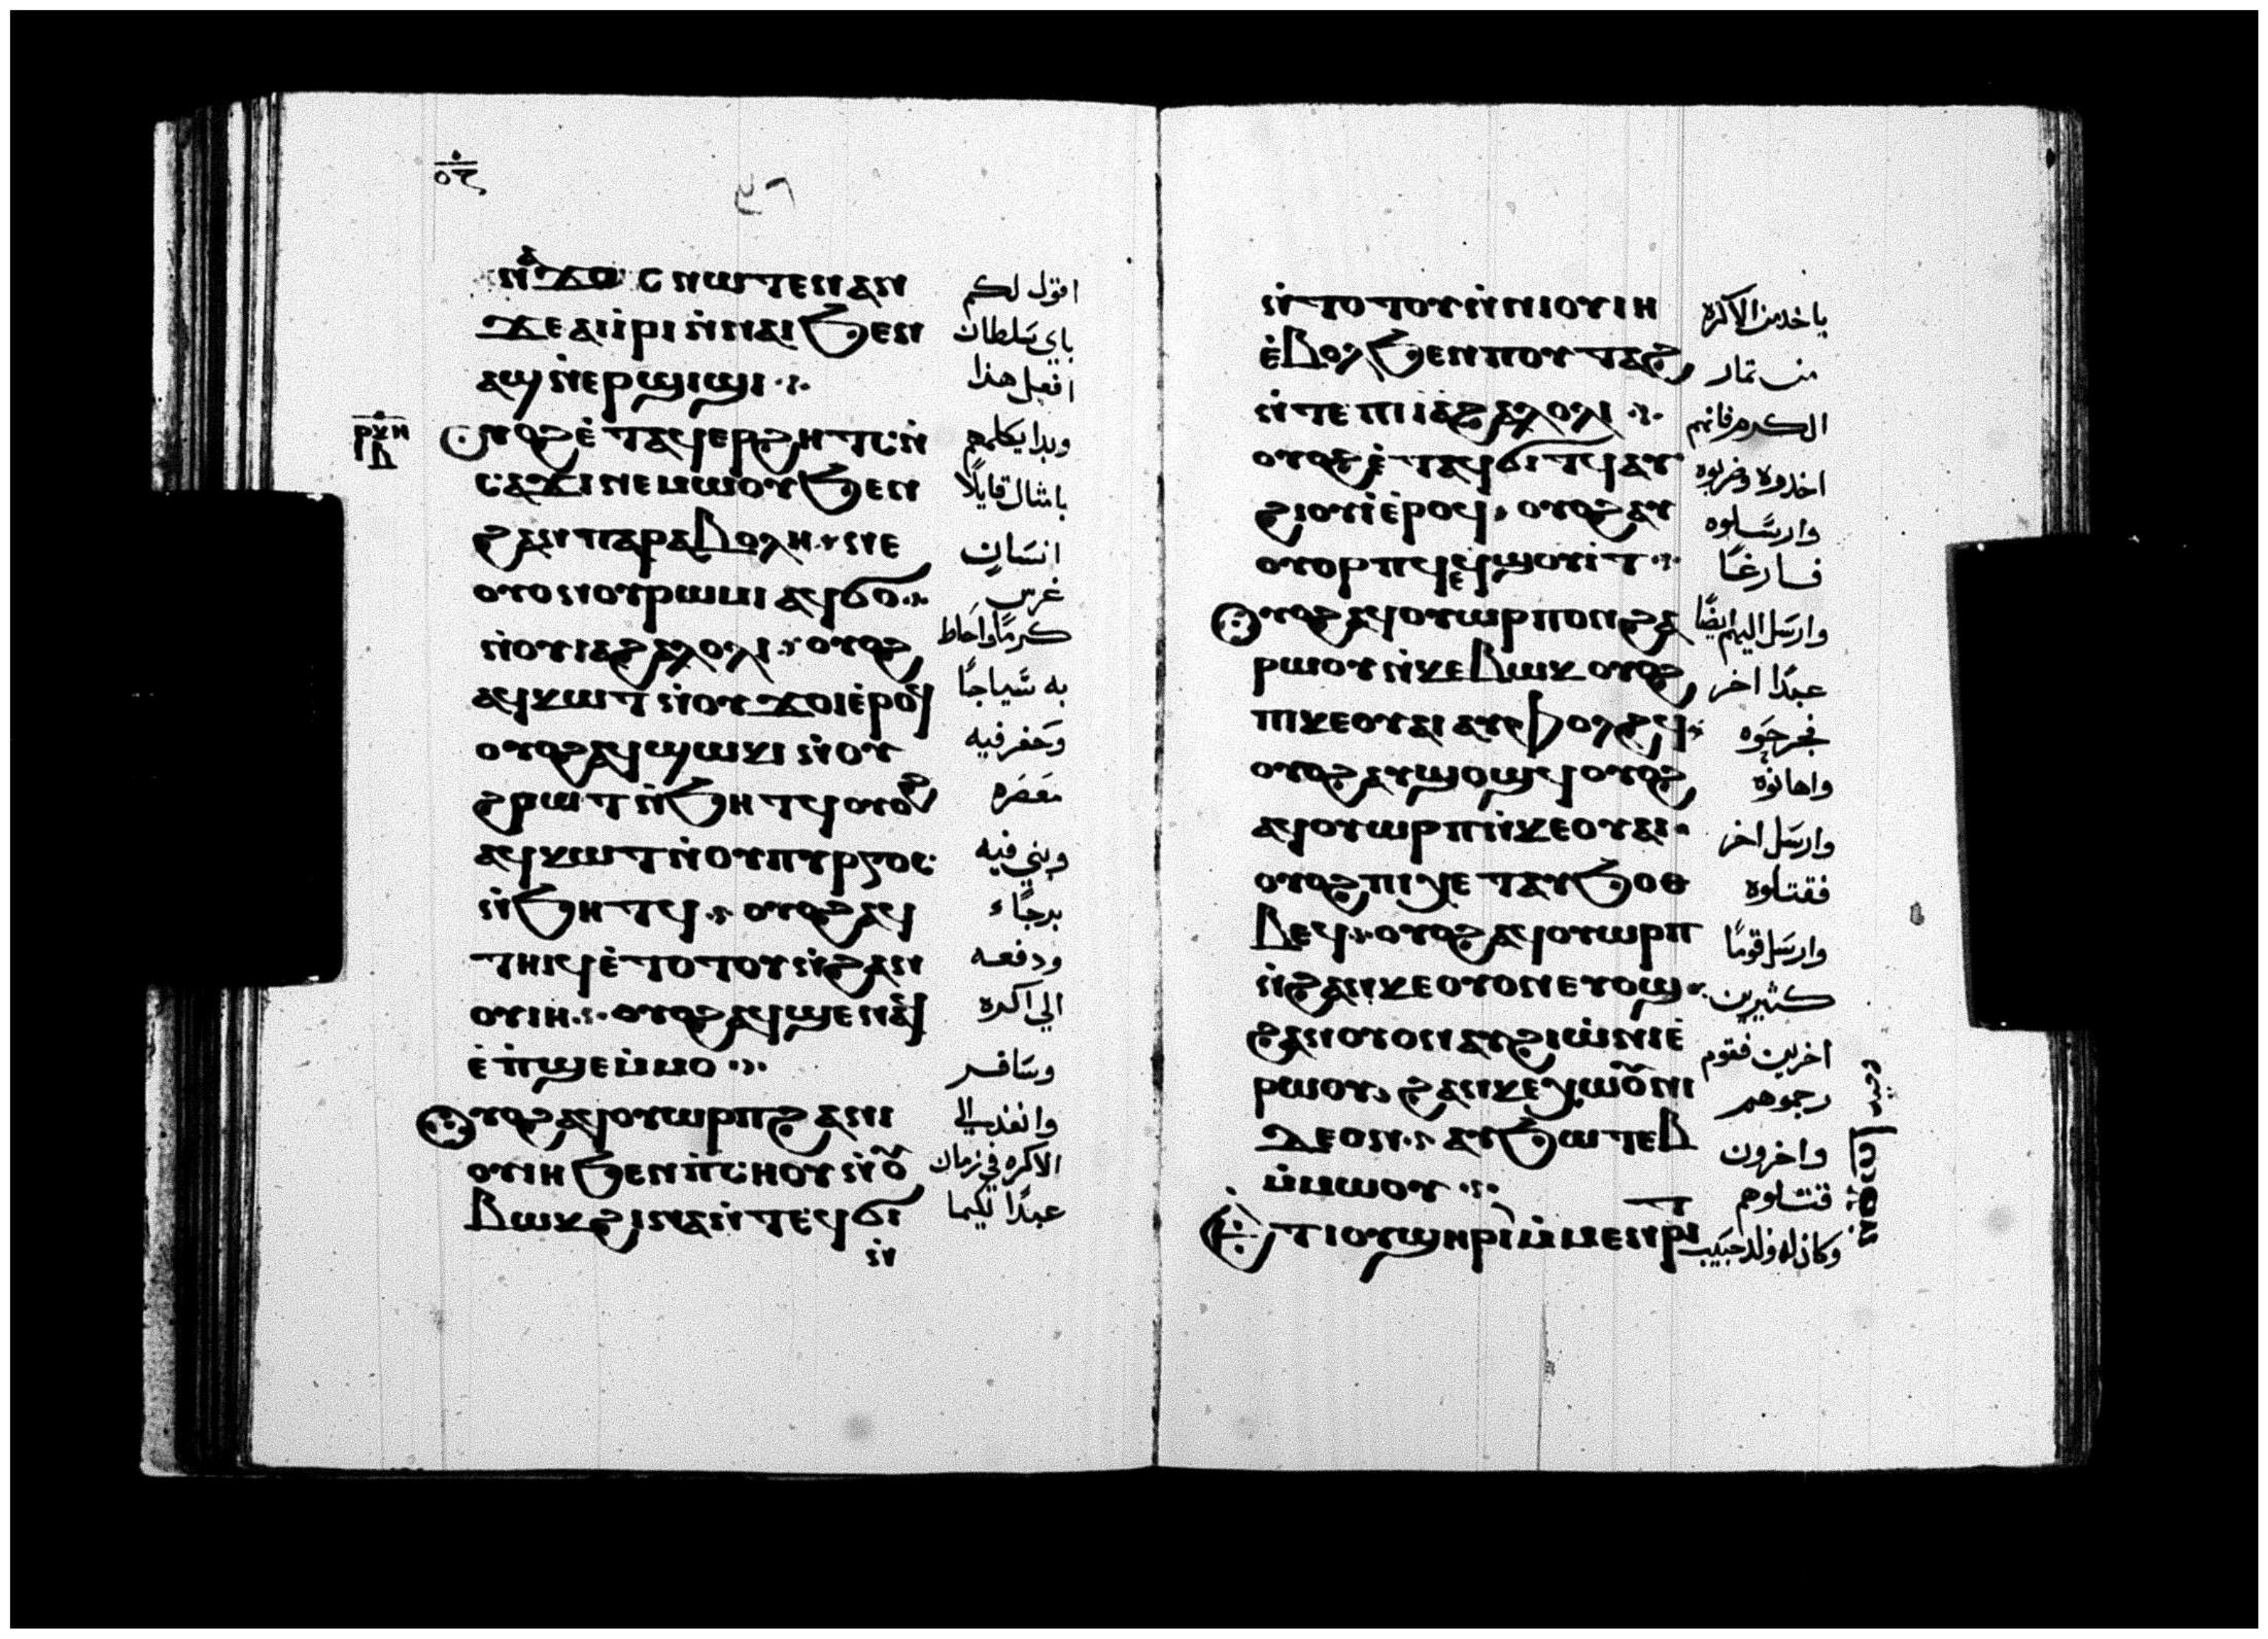 ⲛϯϫⲱ ⲥ ⲛⲱⲧⲉⲛ ⲁⲛ
ϫⲉ ⲁⲓⲓⲣⲓ ⲛ̀ⲛⲁⲓ ϧⲉⲛ
ⲁϣ ⲛ̀ⲉⲣϣⲓϣⲓ
ⲟⲩⲟϩ ⲉ̀ⲧⲁϥⲉⲣϩⲏⲧⲥ ⲛ̀
ⲥⲁϫⲓ ⲛⲉⲙⲱⲟⲩ ϧⲉⲛ
ϩⲁⲛⲡⲁⲣⲁⲃⲟⲗⲏ ⲛⲉ
ⲟⲩⲟⲛ ⲟⲩⲣⲱⲙⲓ ⲁϥϭⲟ
ⲛ̀ⲟⲩⲓⲁϩⲁⲗⲟⲗⲓ ⲟⲩⲟϩ
ⲁϥⲕⲱⲧ ⲛ̀ⲟⲩϫⲟⲓ ⲉ̀ⲣⲟϥ
ⲟⲩⲟϩ ⲁϥϣⲱⲕⲓ ⲛ̀ⲟⲩ
ϩⲣⲱⲧ ⲛ̀ϧⲏⲧϥ ⲟⲩⲟϩ
ⲁϥⲕⲱⲧ ⲛ̀ⲟⲩⲡⲩⲣⲅⲟⲥ
ⲛ̀ϧⲏⲧϥ ⲟⲩⲟϩ ⲁϥ
ⲧⲏⲓϥ ⲉ̀ⲧⲟⲧⲟⲩ ⲛ̀ϩⲁⲛ
ⲟⲩⲓⲏ ⲟⲩⲟϩ ⲁϥϣⲉⲛⲁϥ
ⲉ̀ⲡ̀ϣⲉⲙ̀ⲙⲟ
ⲟⲩⲟϩ ⲁϥⲟⲩⲱⲣⲡ ϩⲁⲛⲓ
ⲟⲩⲓⲏ ϧⲉⲛ ⲡ̀ⲥⲏⲟⲩ ⲛ̀ⲟⲩ
ⲃⲱⲕ ϩⲓⲛⲁ ⲛ̀ⲧⲉϥϭⲓ
ⲛ̀
اقول لكم
باي سَلطان
افعل هذا
وبدا يكلمهم
بامثال قايلًا
انسَان
غرس
كرمًا واحَاط
به سَياجًا
وحَفر فيه
معصَره
وبني فيه
برجًاء
ودفعه
الي اكره
وسَافر
وانفذ الي
الاكره في زمان
عبدًا لكيما
ⲛ̀ⲧⲟⲧⲟⲩ ⲛ̀ⲛⲓⲟⲩⲓⲏ
ⲉ̀ⲃⲟⲗ ϧⲉⲛ ⲡⲟⲩⲧⲁϩ
ⲛ̀ⲧⲉ ⲡⲓⲓⲁϩⲁⲗⲟⲗⲓ
ⲟⲩⲟϩ ⲉ̀ⲧⲁⲩϭⲓⲧϥ ⲁⲩ
ϩⲓⲟⲩⲓ ⲉ̀ⲣⲟϥ ⲟⲩⲟϩ ⲁⲩ
ⲟⲩⲟⲣⲡϥ ⲉϥϣⲟⲩⲓⲧ
ⲟⲩⲟϩ ⲁϥⲟⲩⲱⲣⲡ ⲟⲛ ϩⲁ
ⲣⲱⲟⲩ ⲛ̀ⲕⲉⲃⲱⲕ ⲟⲩⲟϩ
ⲡⲓⲕⲉⲟⲩⲁⲓ ⲁⲩⲫⲟⲗϩϥ
ⲟⲩⲟϩ ⲁⲩϣⲟϣϥ ⲟⲩⲟϩ
ⲁϥⲟⲩⲱⲣⲡ ⲛ̀ⲕⲉⲟⲩⲁⲓ
ⲟⲩⲟϩ ⲡⲓⲭⲉⲧ ⲁⲩϧⲟⲑ
ⲃⲉϥ ⲟⲩⲟϩ ⲁϥⲟⲩⲱⲣⲡ
ⲛ̀ϩⲁⲛⲕⲉⲟⲩⲟⲛ ⲉⲩⲟϣ
ϩⲁⲛⲟⲩⲟⲛ ⲁⲩϩⲓⲱⲛⲓ ⲉ̀
ⲣⲱⲟⲩ ϩⲁⲛⲕⲉⲭⲱⲟⲩⲛⲓ
ⲇⲉ ⲟⲛ ⲁⲩϧⲱⲧⲉⲃ
ⲙ̀ⲙⲱⲟⲩ
ⲛⲉ ⲟⲩⲟⲛⲧ ⲟⲩϣⲏⲣⲓ ⲙ̀ⲙⲉⲛⲣⲓⲧ
ياخد من الاكره
من تمار
الكرم فانهم
اخدوه وضربوه
وارسَلوه
فارغًا
وارسَل اليهم ايضًا
عبدًا اخر
فجرحَوه
واهانوه
وارسَل اخر
فقتلوه
وارسَل قومًا
كثيرين
اخرين فقوم
رجموهم
واخرون
قتلوهم
وكان له ولد حَبيب
وحيد